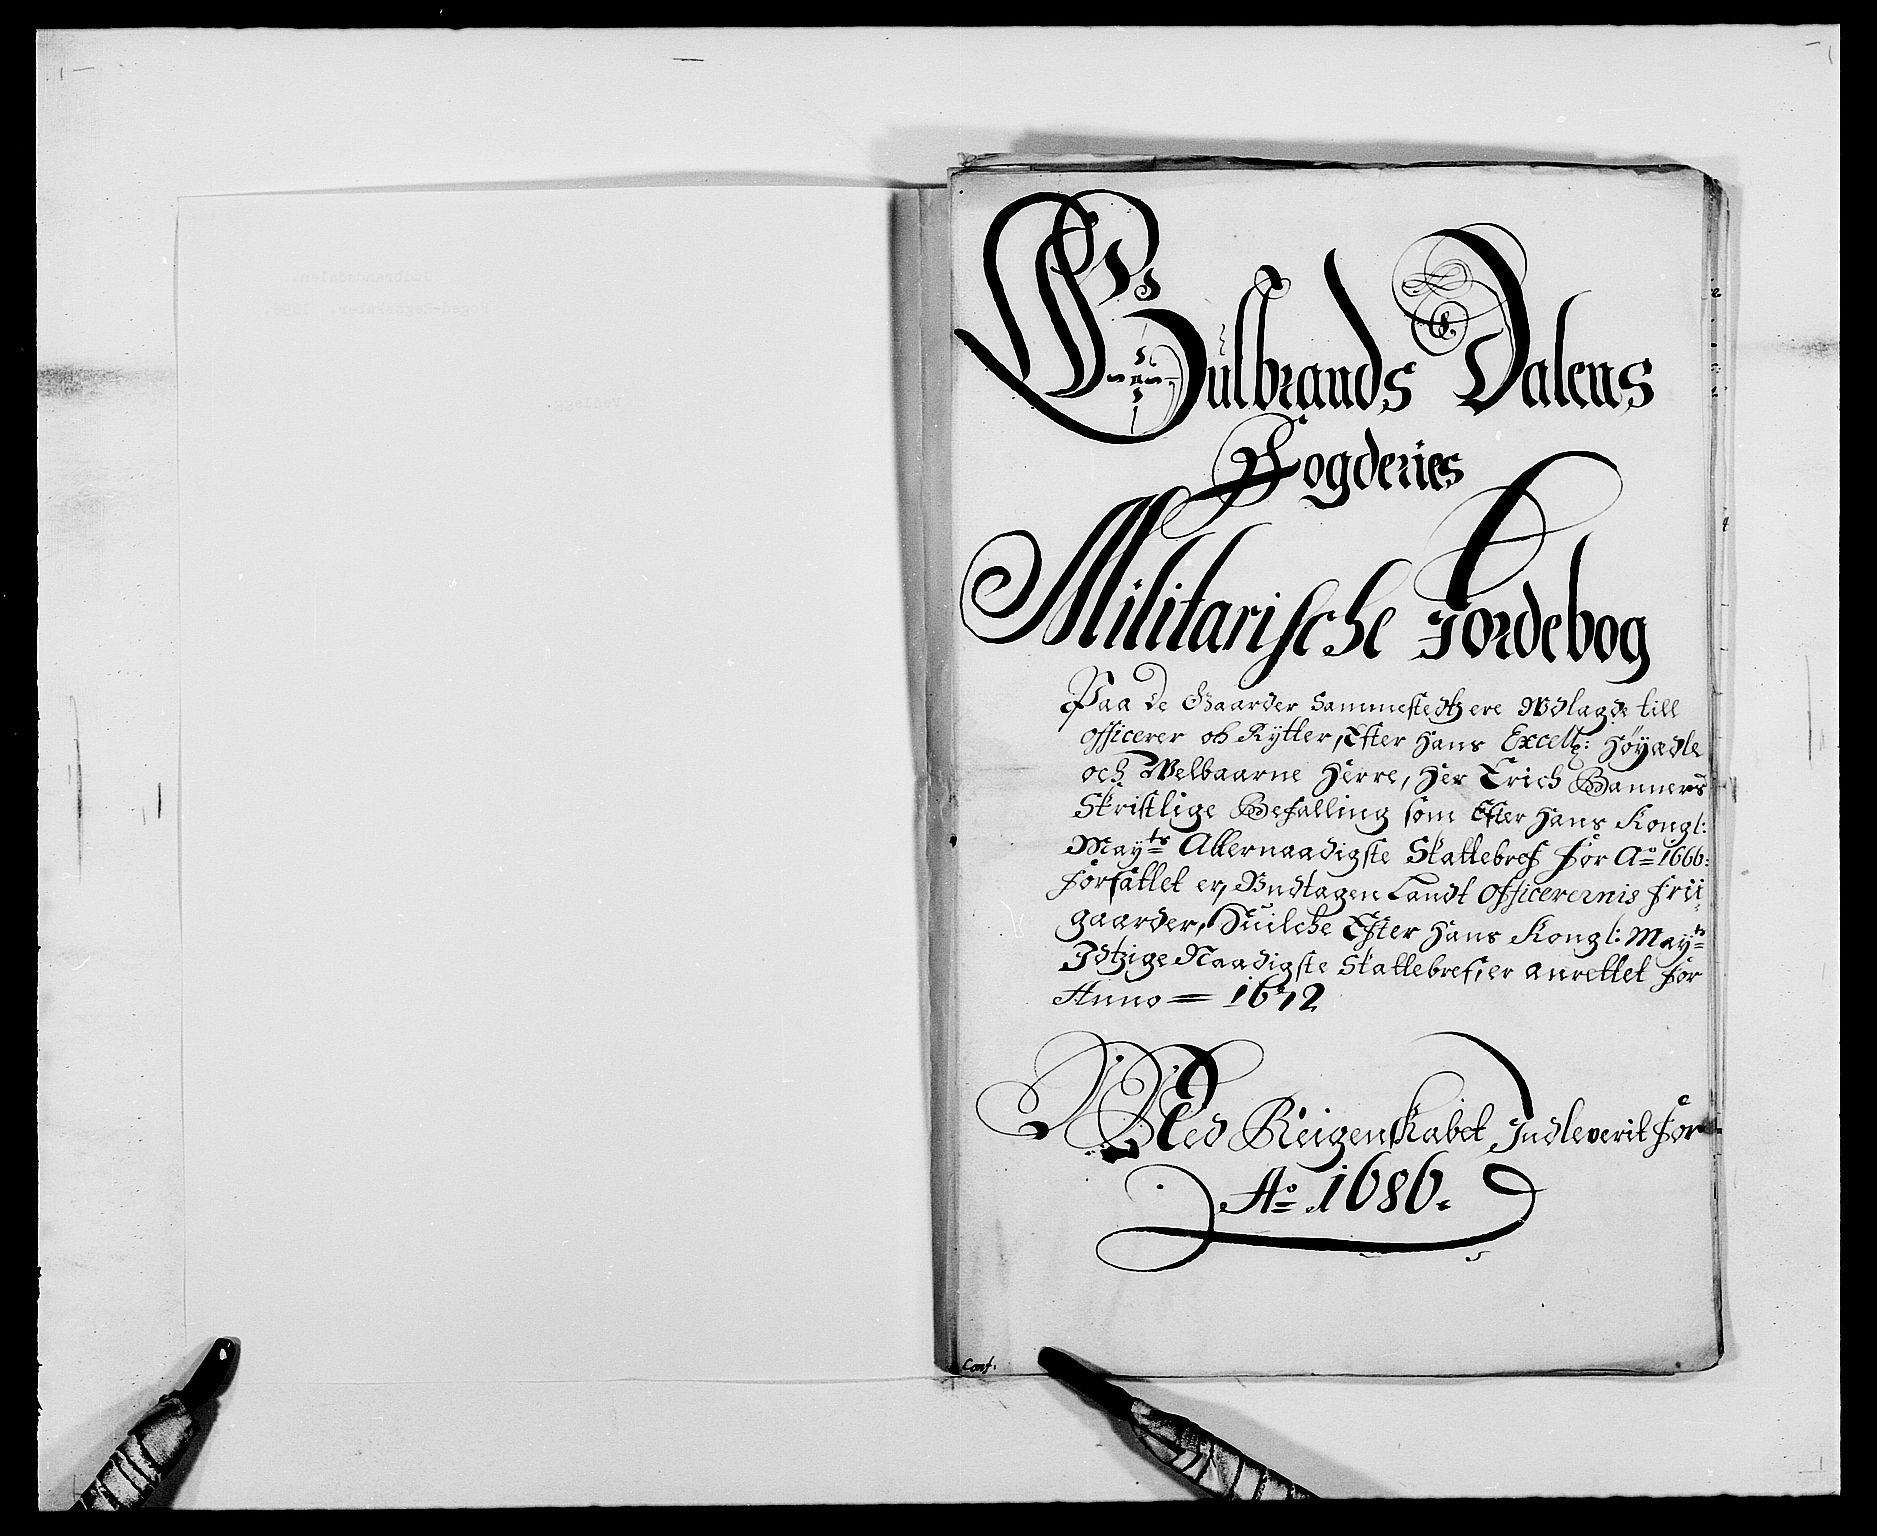 Gulbrands Dalens
Fogderies
Militarische Jordebog
Paa de Gaarder sammestedtz ere Udlagde till
officerer och Rÿtter, Efter Hans Excell: Høyædle
och Welbaarne Herre, Her Erich Banners
Skriftlige Befalling som Efter Hans Kongl:
Mayts Allernaadigste Skattebref for Ao 1666:
forfattet er, Undtagen Landt Officerernis frii
gaarder, Huilche Efter Hans Kongl: Mayts
Itzige Naadigste Skattebref, er anrettet for
Anno = 1672
Med Reigenskabet Indleverit for
Ao 1686.
Conf.